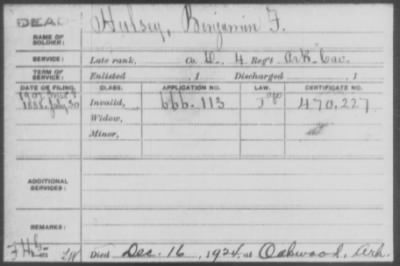 DEAD
Hulsey, Benjamin F.
NAME OF SOLDIER:
SERVICE:
Late rank, Co. D, 4 Reg't Ark. Cav.
TERM OF SERVICE:
Enlisted , 1 Discharged , 1
DATE OF FILING. CLASS. APPLICATION NO. LAW. CERTIFICATE NO.
1888, July 30 Invalid, 666.113 470.227
Widow,
Minor,
ADDITIONAL SERVICES:
REMARKS:
Died Dec. 16, 1924, at Oakwood, Ark.